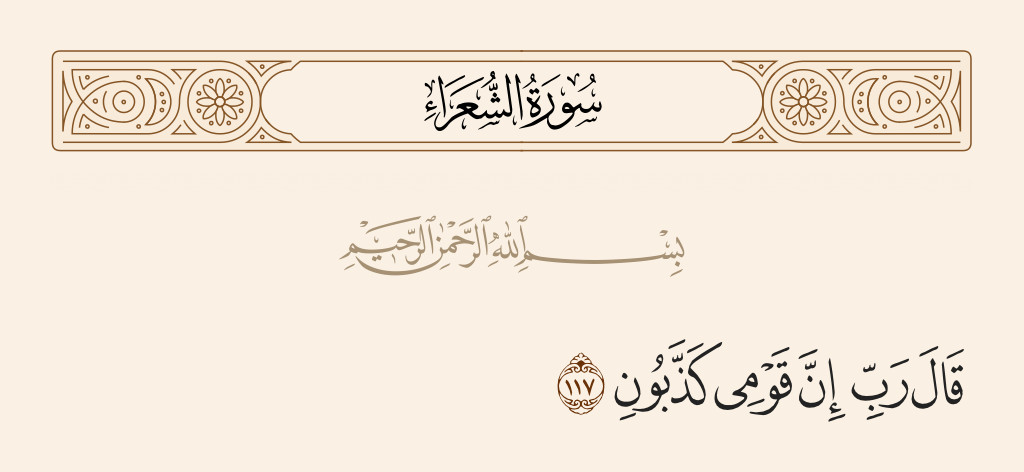 سُورَةُ الشُّعَرَاءِ
بِسْمِ ٱللَّهِ ٱلرَّحْمَٰنِ ٱلرَّحِيمِ
قَالَ رَبِّ إِنَّ قَوْمِى كَذَّبُونِ ١١٧